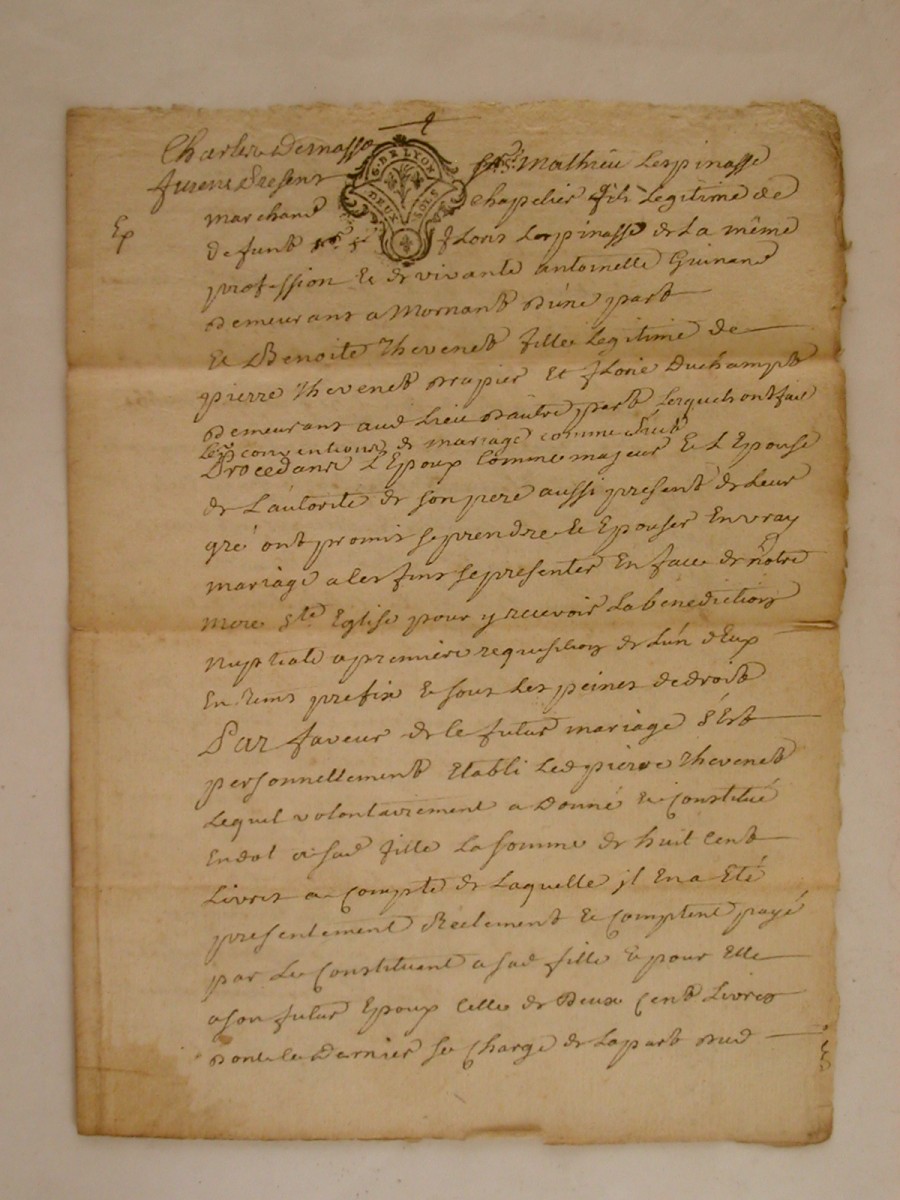 Charles Demasso
furent Presens
G. DE LYON
DEUX SOLS
Sr. Mathieu Lespinasse
marchand chapelier fils Legitime de
Ex
defunt floris Lespinasse de La même
profession Et de vivante antoinette Guinand
demeurans a Mornant d'une part
Et Benoite Thevenet fille Legitime de
pierre Thevenet drapier Et florie Duchampt
demeurans aud Lieu d'autre part Lesquels ont fait
Les conventions de mariage comme suit
Procedans L'Epoux Comme majeur Et L'Epouse
de L'autorité de son pere aussi present de Leur
gré ont promis se prendre Et Epouser En vray
mariage a les fins se presenter En face de nôtre
mere Ste Eglise pour y recevoir La benediction
Nuptiale a premiere requisition de L'un d'Eux
En tems prefix Et sous Les peines de droit
Par faveur de le futur mariage s'Est
personnellement Etabli Led pierre Thevenet
Lequel volontairement a Donné Et Constitué
En dot a sad fille La somme de huit Cent
Livres a Compte de Laquelle il En a Eté
presentement Réelement Et Comptent payé
par Le Constituant a sad fille Et pour Elle
a son futur Epoux Celle de Deux Cent Livres
dont le Dernier se Charge de La part dud